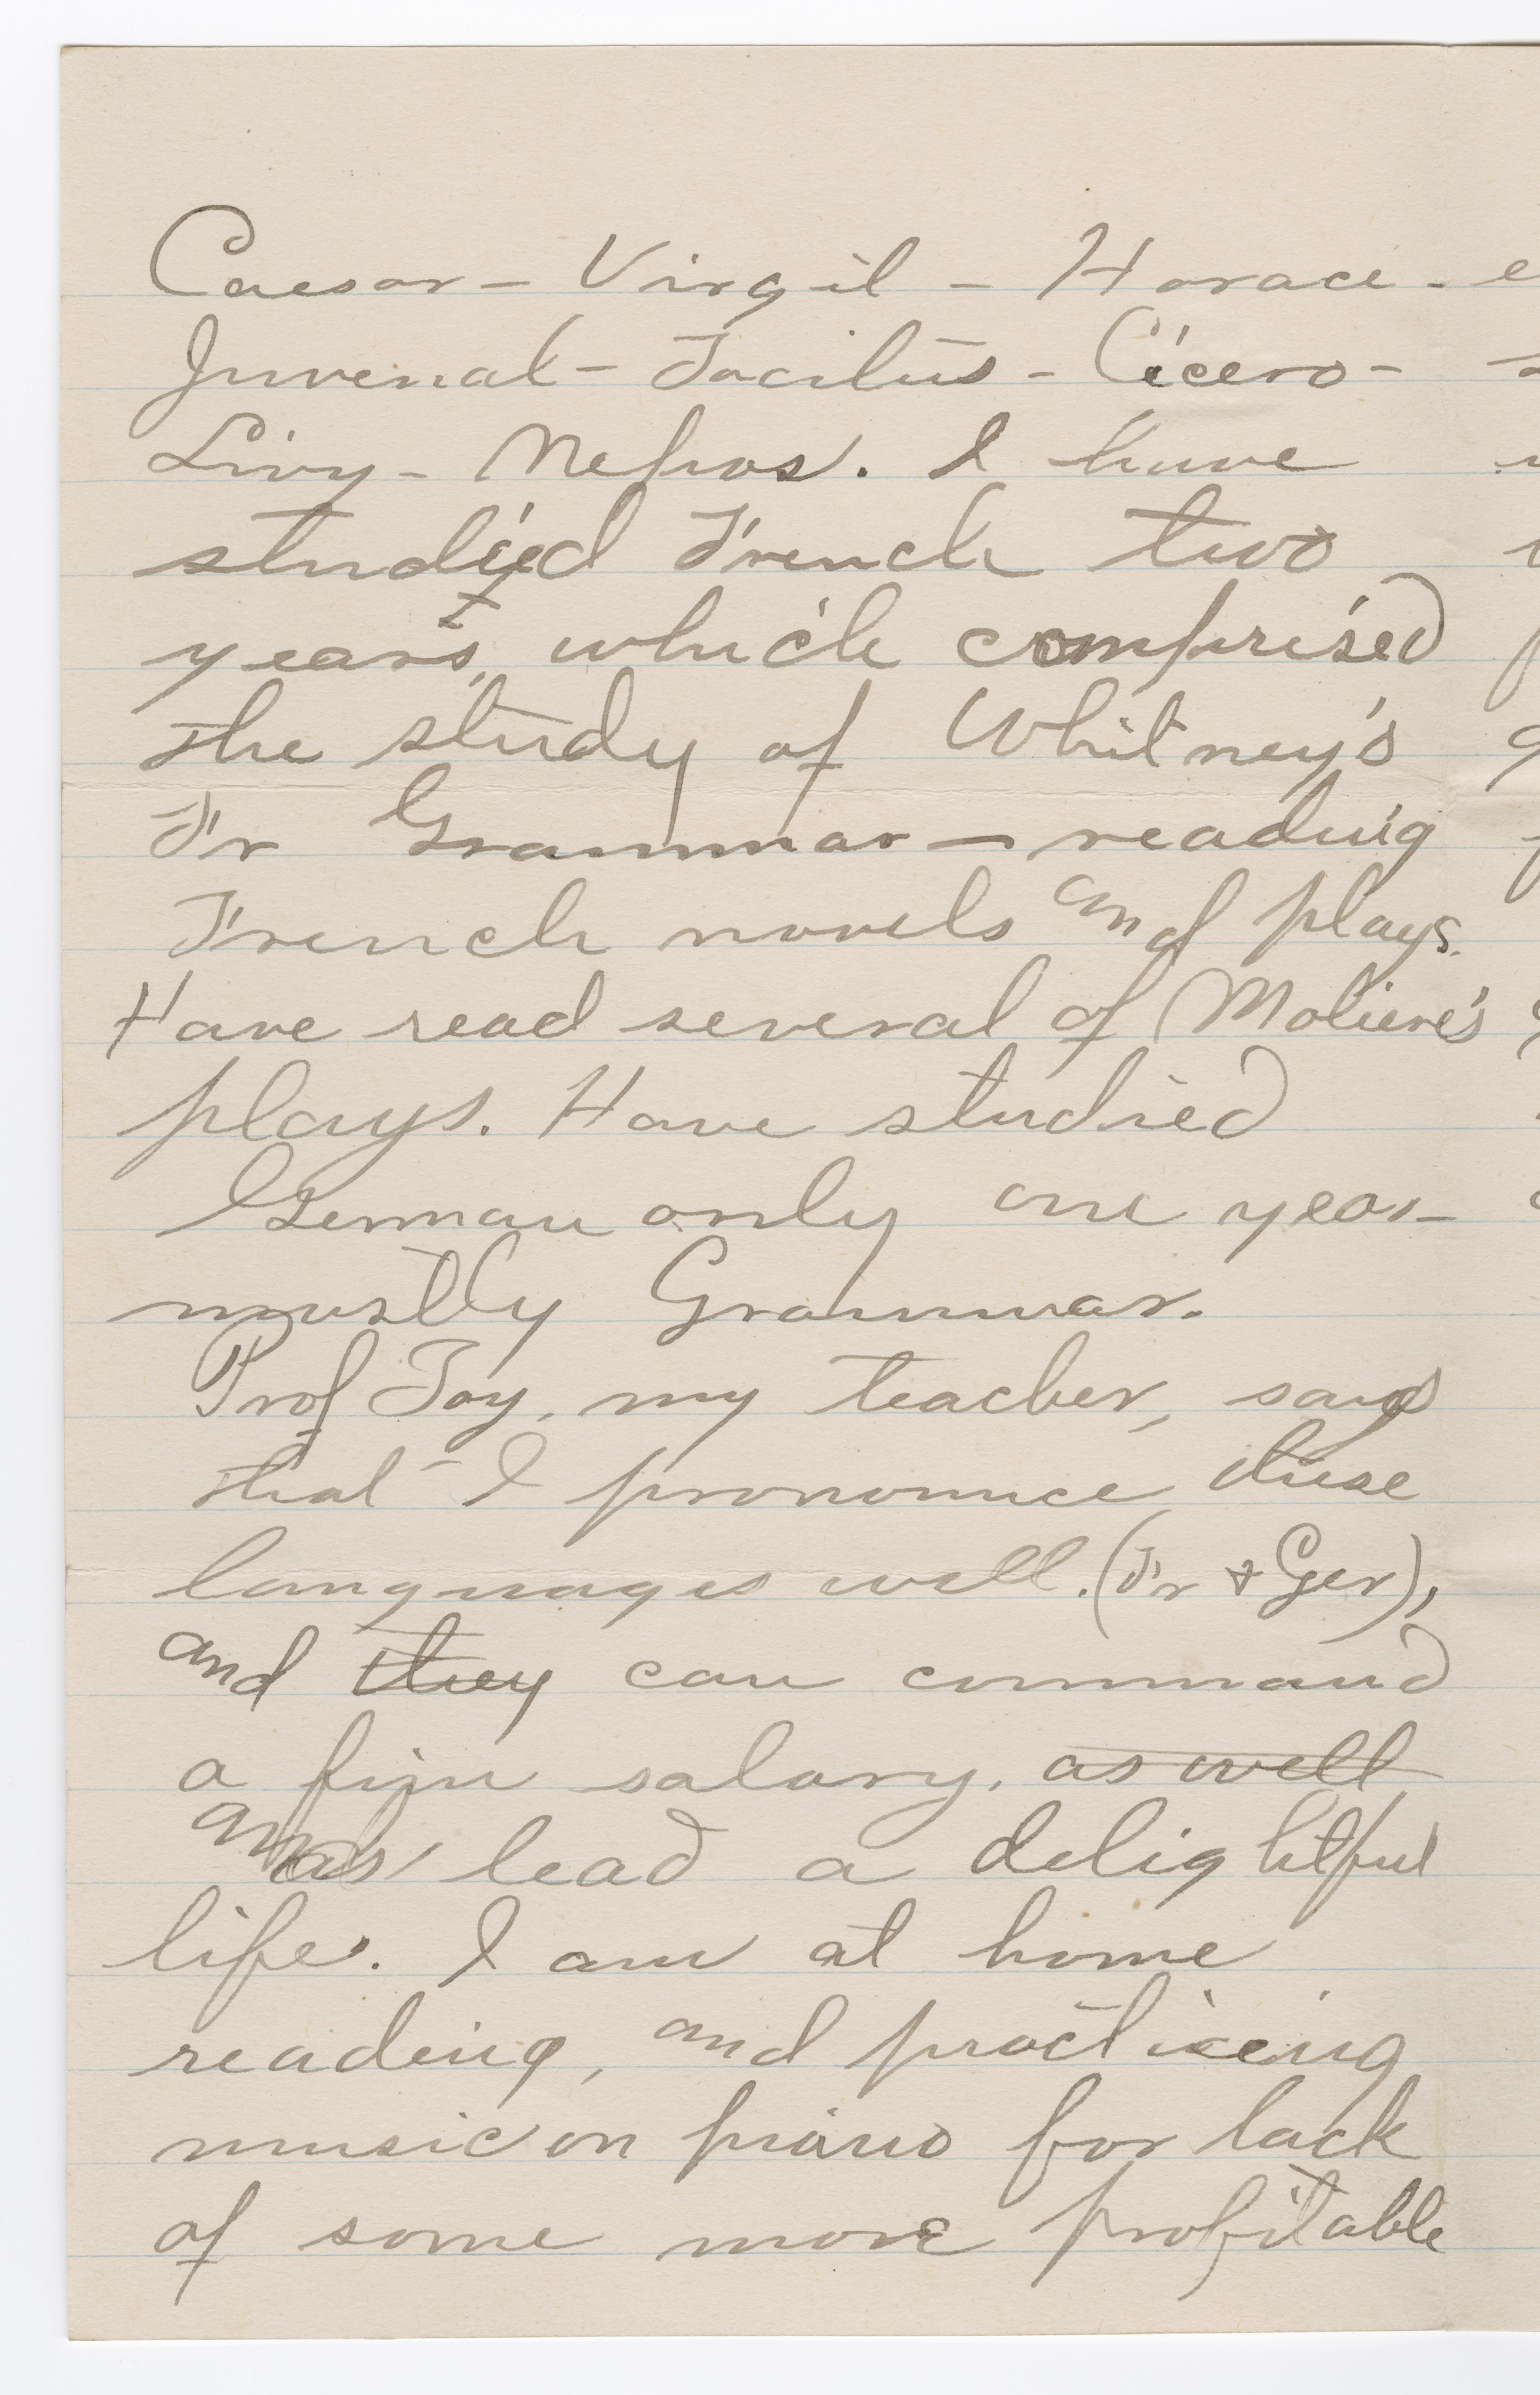 Caesar - Virgil - Horace -
Juvenal - Tacitus - Cicero -
Livy - Nepos. I have
studied French two
years, which comprised
the study of Whitney's
Fr Grammar - reading
French novels and plays.
Have read several of Moliere's
plays. Have studied
German only one year -
mostly Grammar.
Prof Toy, my teacher, says
that I pronounce these
languages well. (Fr & Ger),
and they can command
a fine salary, as well
and as lead a delightful
life. I am at home
reading, and practiceing
music on piano for lack
of some more profitable